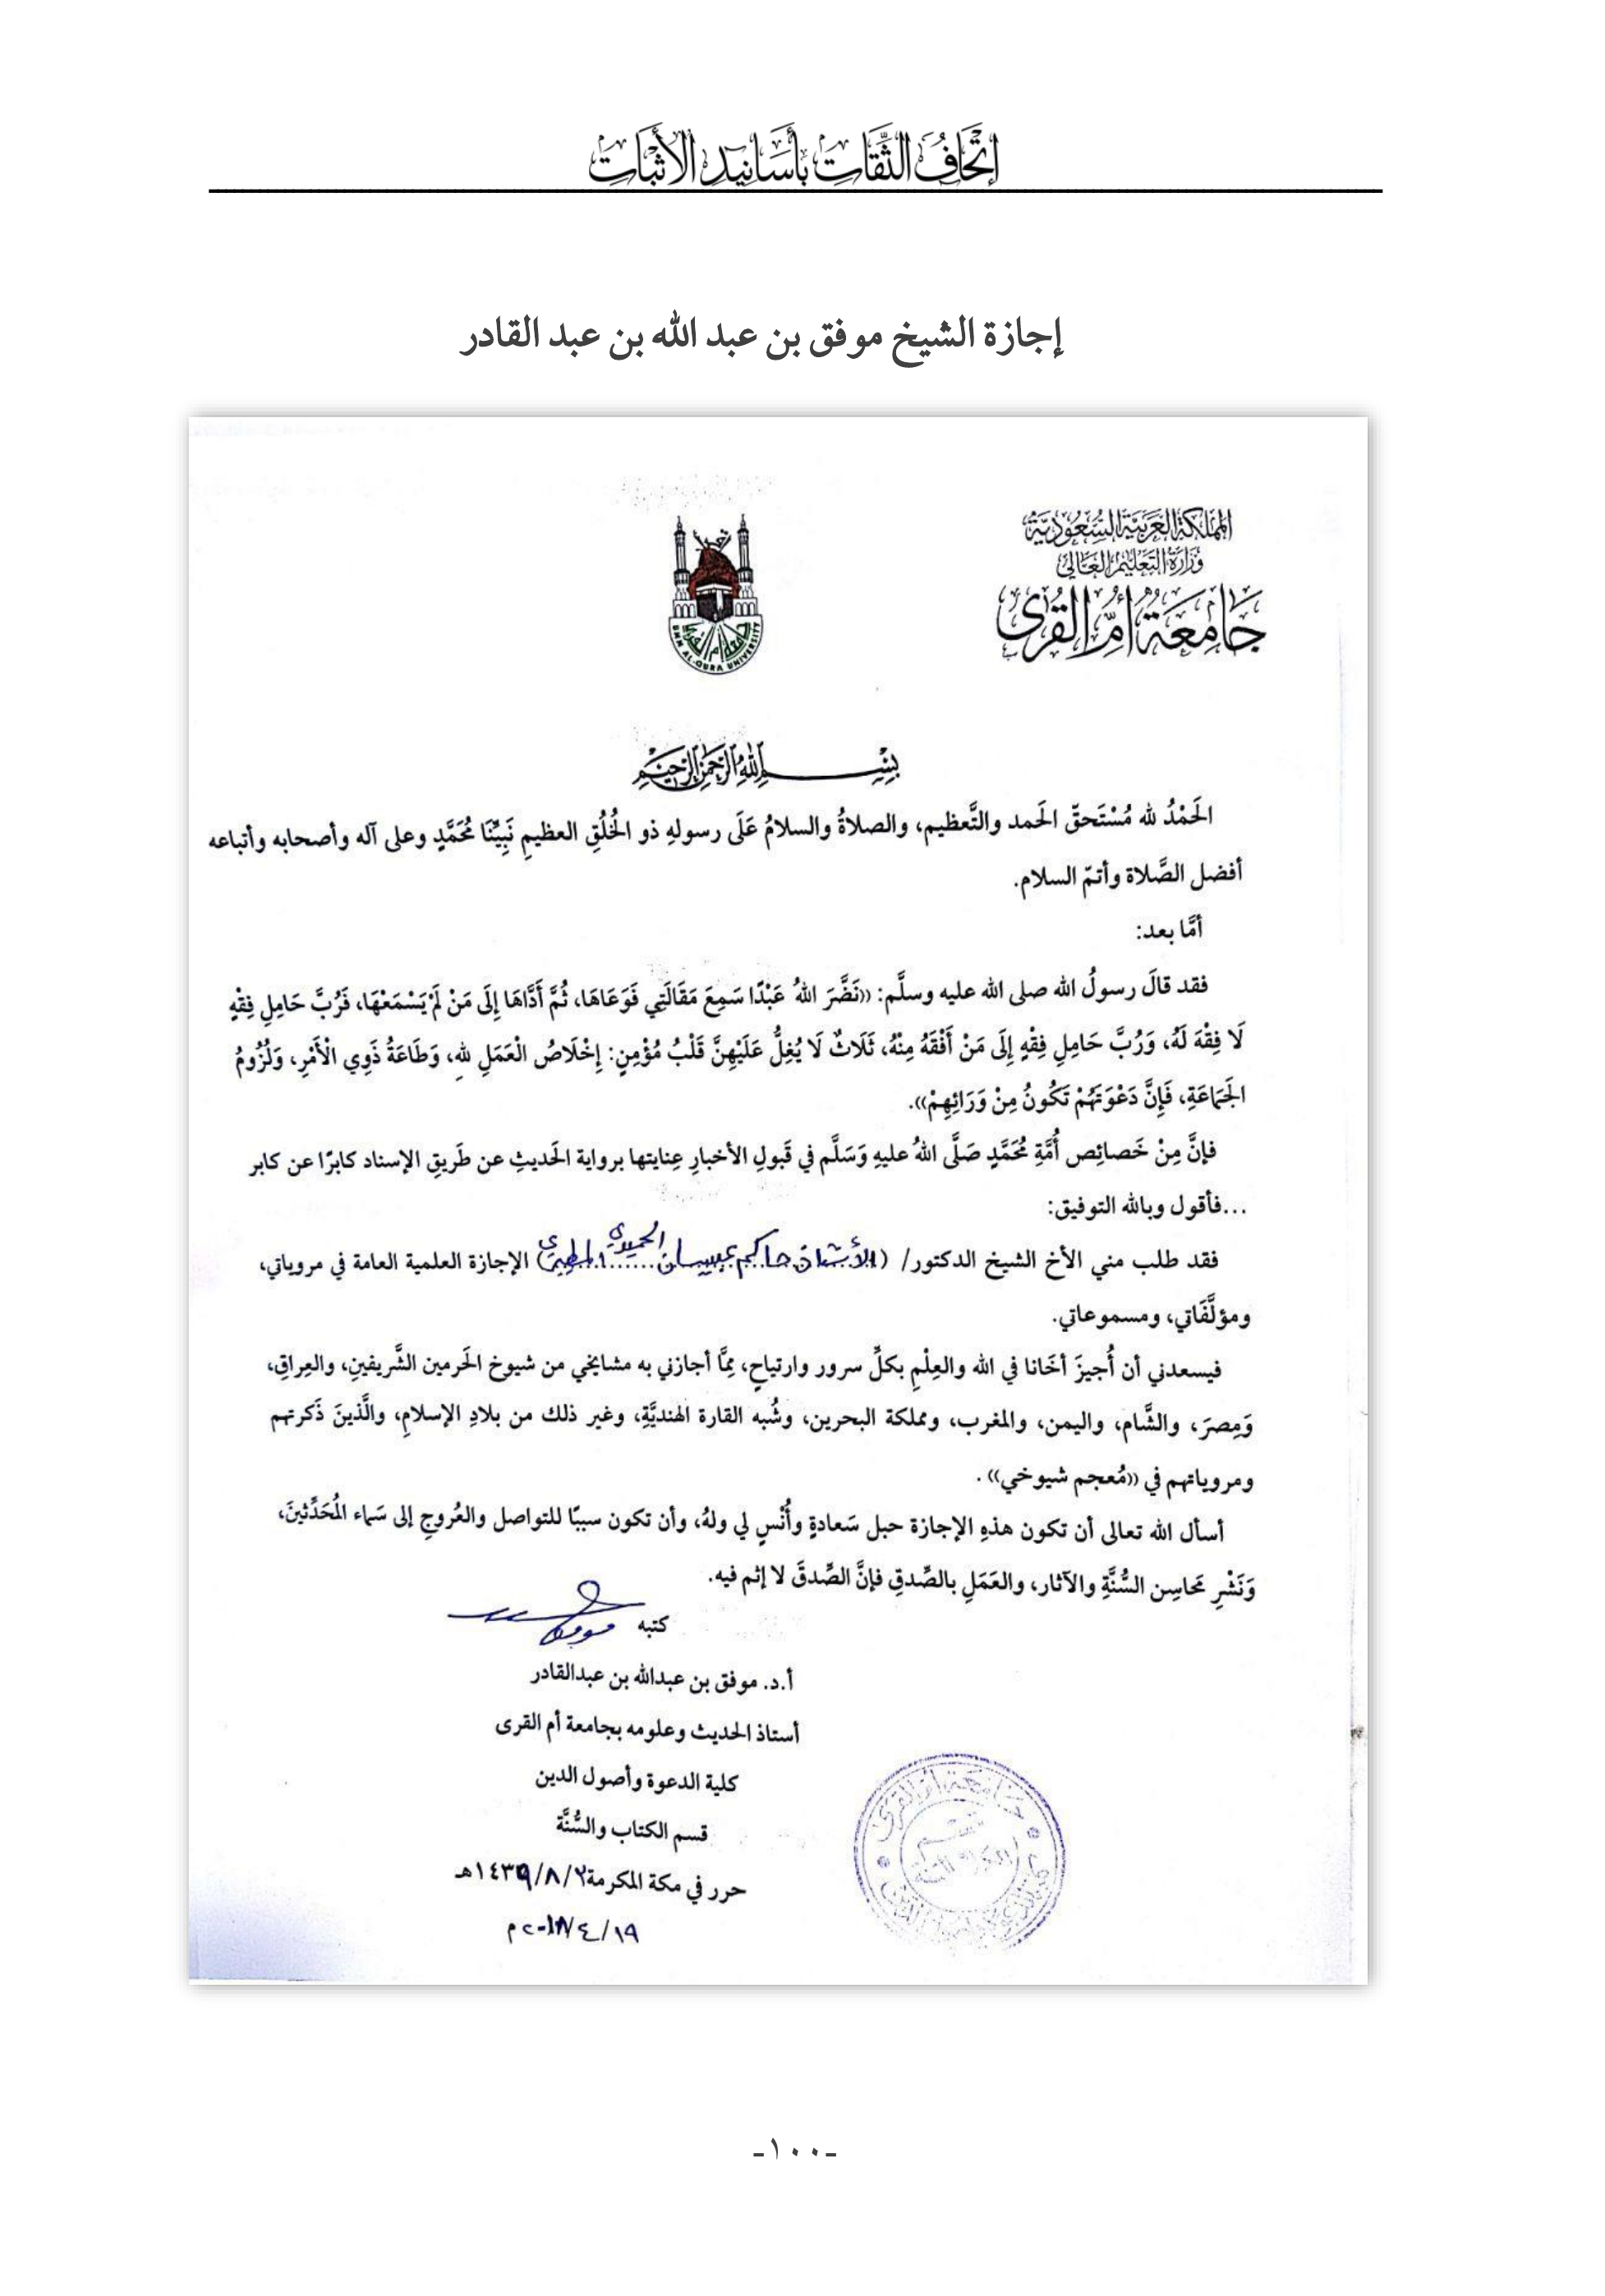 إتحاف الثقات بأسانيد الأثبات
إجازة الشيخ موفق بن عبد الله بن عبد القادر
المملكة العربية السعودية
وزارة التعليم العالي
جامعة أم القرى
جامعة أم القرى
UMM AL-QURA UNIVERSITY
بسم الله الرحمن الرحيم
الحَمْدُ لله مُسْتَحقّ الحَمد والتَّعظيم، والصلاةُ والسلامُ عَلَى رسولهِ ذو الخُلُقِ العظيمِ نَبِيِّنَا مُحَمَّدٍ وعلى آله وأصحابه وأتباعه
أفضل الصَّلاة وأتمّ السلام.
أمَّا بعد:
فقد قالَ رسولُ الله صلى الله عليه وسلَّم: ((نَضَّرَ اللهُ عَبْدًا سَمِعَ مَقَالَتِي فَوَعَاهَا، ثُمَّ أَدَّاهَا إِلَى مَنْ لَمْ يَسْمَعْهَا، فَرُبَّ حَامِلِ فِقْهٍ
لَا فِقْهَ لَهُ، وَرُبَّ حَامِلِ فِقْهٍ إِلَى مَنْ أَفْقَهُ مِنْهُ، ثَلَاثٌ لَا يُغِلُّ عَلَيْهِنَّ قَلْبُ مُؤْمِنٍ: إِخْلَاصُ الْعَمَلِ للهِ، وَطَاعَةُ ذَوِي الْأَمْرِ، وَلُزُومُ
الجَمَاعَةِ، فَإِنَّ دَعْوَتَهُمْ تَكُونُ مِنْ وَرَائِهِمْ)).
فإنَّ مِنْ خَصائِص أُمَّةِ مُحَمَّدٍ صَلَّى اللهُ عليهِ وَسَلَّم في قَبولِ الأخبارِ عِنايتها برواية الحَديثِ عن طَريقِ الإسناد كابرًا عن كابر
...فأقول وبالله التوفيق:
فقد طلب مني الأخ الشيخ الدكتور/ (الأستاذ حاكم عبيسان الحميدي المطيري) الإجازة العلمية العامة في مروياتي،
ومؤلَّفَاتي، ومسموعاتي.
فيسعدني أن أُجيزَ أخَانا في الله والعِلْمِ بكلِّ سرور وارتياحٍ، مِمَّا أجازني به مشايخي من شيوخ الحَرمين الشَّريفينِ، والعِراقِ،
وَمِصرَ، والشَّام، واليمن، والمغرب، ومملكة البحرين، وشُبه القارة الهنديَّةِ، وغير ذلك من بلادِ الإسلامِ، والَّذينَ ذَكرتهم
ومروياتهم في ((مُعجم شيوخي)) .
أسأل الله تعالى أن تكون هذهِ الإجازة حبل سَعادةٍ وأُنْسٍ لي ولهُ، وأن تكون سببًا للتواصل والعُروجِ إلى سَماء المُحَدِّثينَ،
وَنَشْرِ مَحاسِن السُّنَّةِ والآثار، والعَمَلِ بالصِّدقِ فإنَّ الصِّدقَ لا إثم فيه.
كتبه
أ.د. موفق بن عبدالله بن عبدالقادر
أستاذ الحديث وعلومه بجامعة أم القرى
كلية الدعوة وأصول الدين
قسم الكتاب والسُّنَّة
حرر في مكة المكرمة ٢/٨/١٤٣٩هـ
١٩/٤/٢٠١٨م
جامعة أم القرى
-١٠٠-